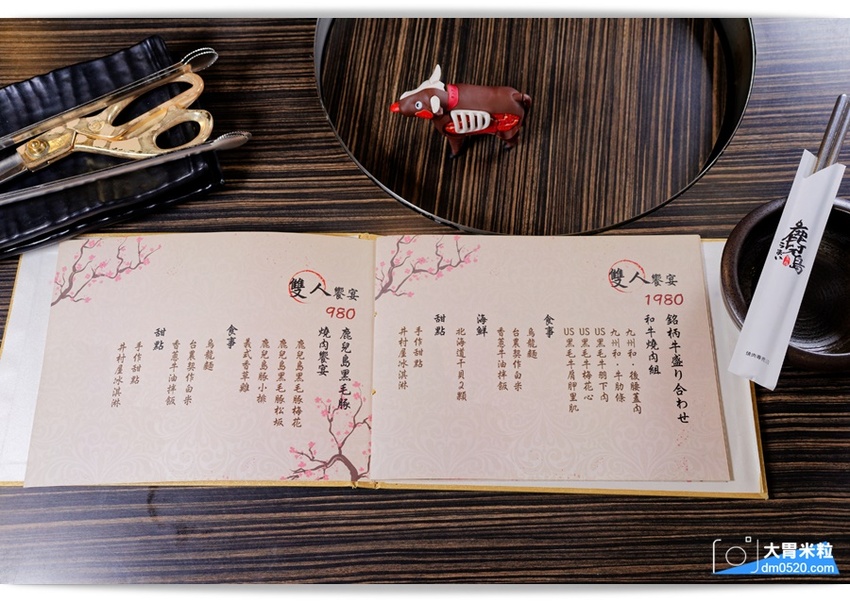 雙人饗宴
980
鹿兒島黑毛豚
燒肉饗宴
鹿兒島黑毛豚梅花
鹿兒島黑毛豚松坂
鹿兒島豚小排
義式香草雞
食事
烏龍麵
台農契作白米
香蔥牛油拌飯
甜點
手作甜點
井村屋冰淇淋
雙人饗宴
1980
銘柄牛盛り合わせ
和牛燒肉組
九州和牛後腰蓋肉
九州和牛肋條
US黑毛牛翼下肉
US黑毛牛梅花心
US黑毛牛肩胛里肌
食事
烏龍麵
台農契作白米
香蔥牛油拌飯
海鮮
北海道干貝2顆
甜點
手作甜點
井村屋冰淇淋
大胃米粒
dm0520.com